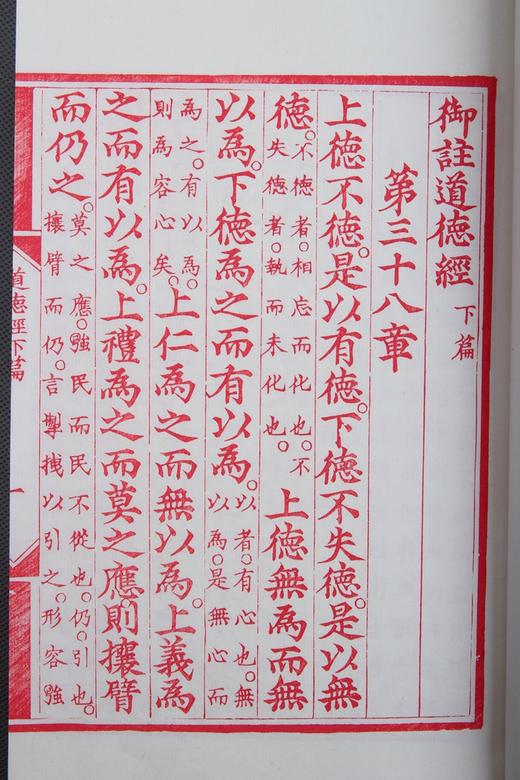 御註道德經 下篇
第三十八章
上德不德。是以有德。下德不失德。是以無
德。不德者。相忘而化也。不失德者。執而未化也。上德無為而無
以為。下德為之而有以為。以者。有心也。無以為。是無心而
為之。有以為。則為容心矣。上仁為之而無以為。上義為
之而有以為。上禮為之而莫之應。則攘臂
而仍之。莫之應。強民而民不從也。仍。引也。攘臂而仍。言掣拽以引之。形容強
道德經下篇 一